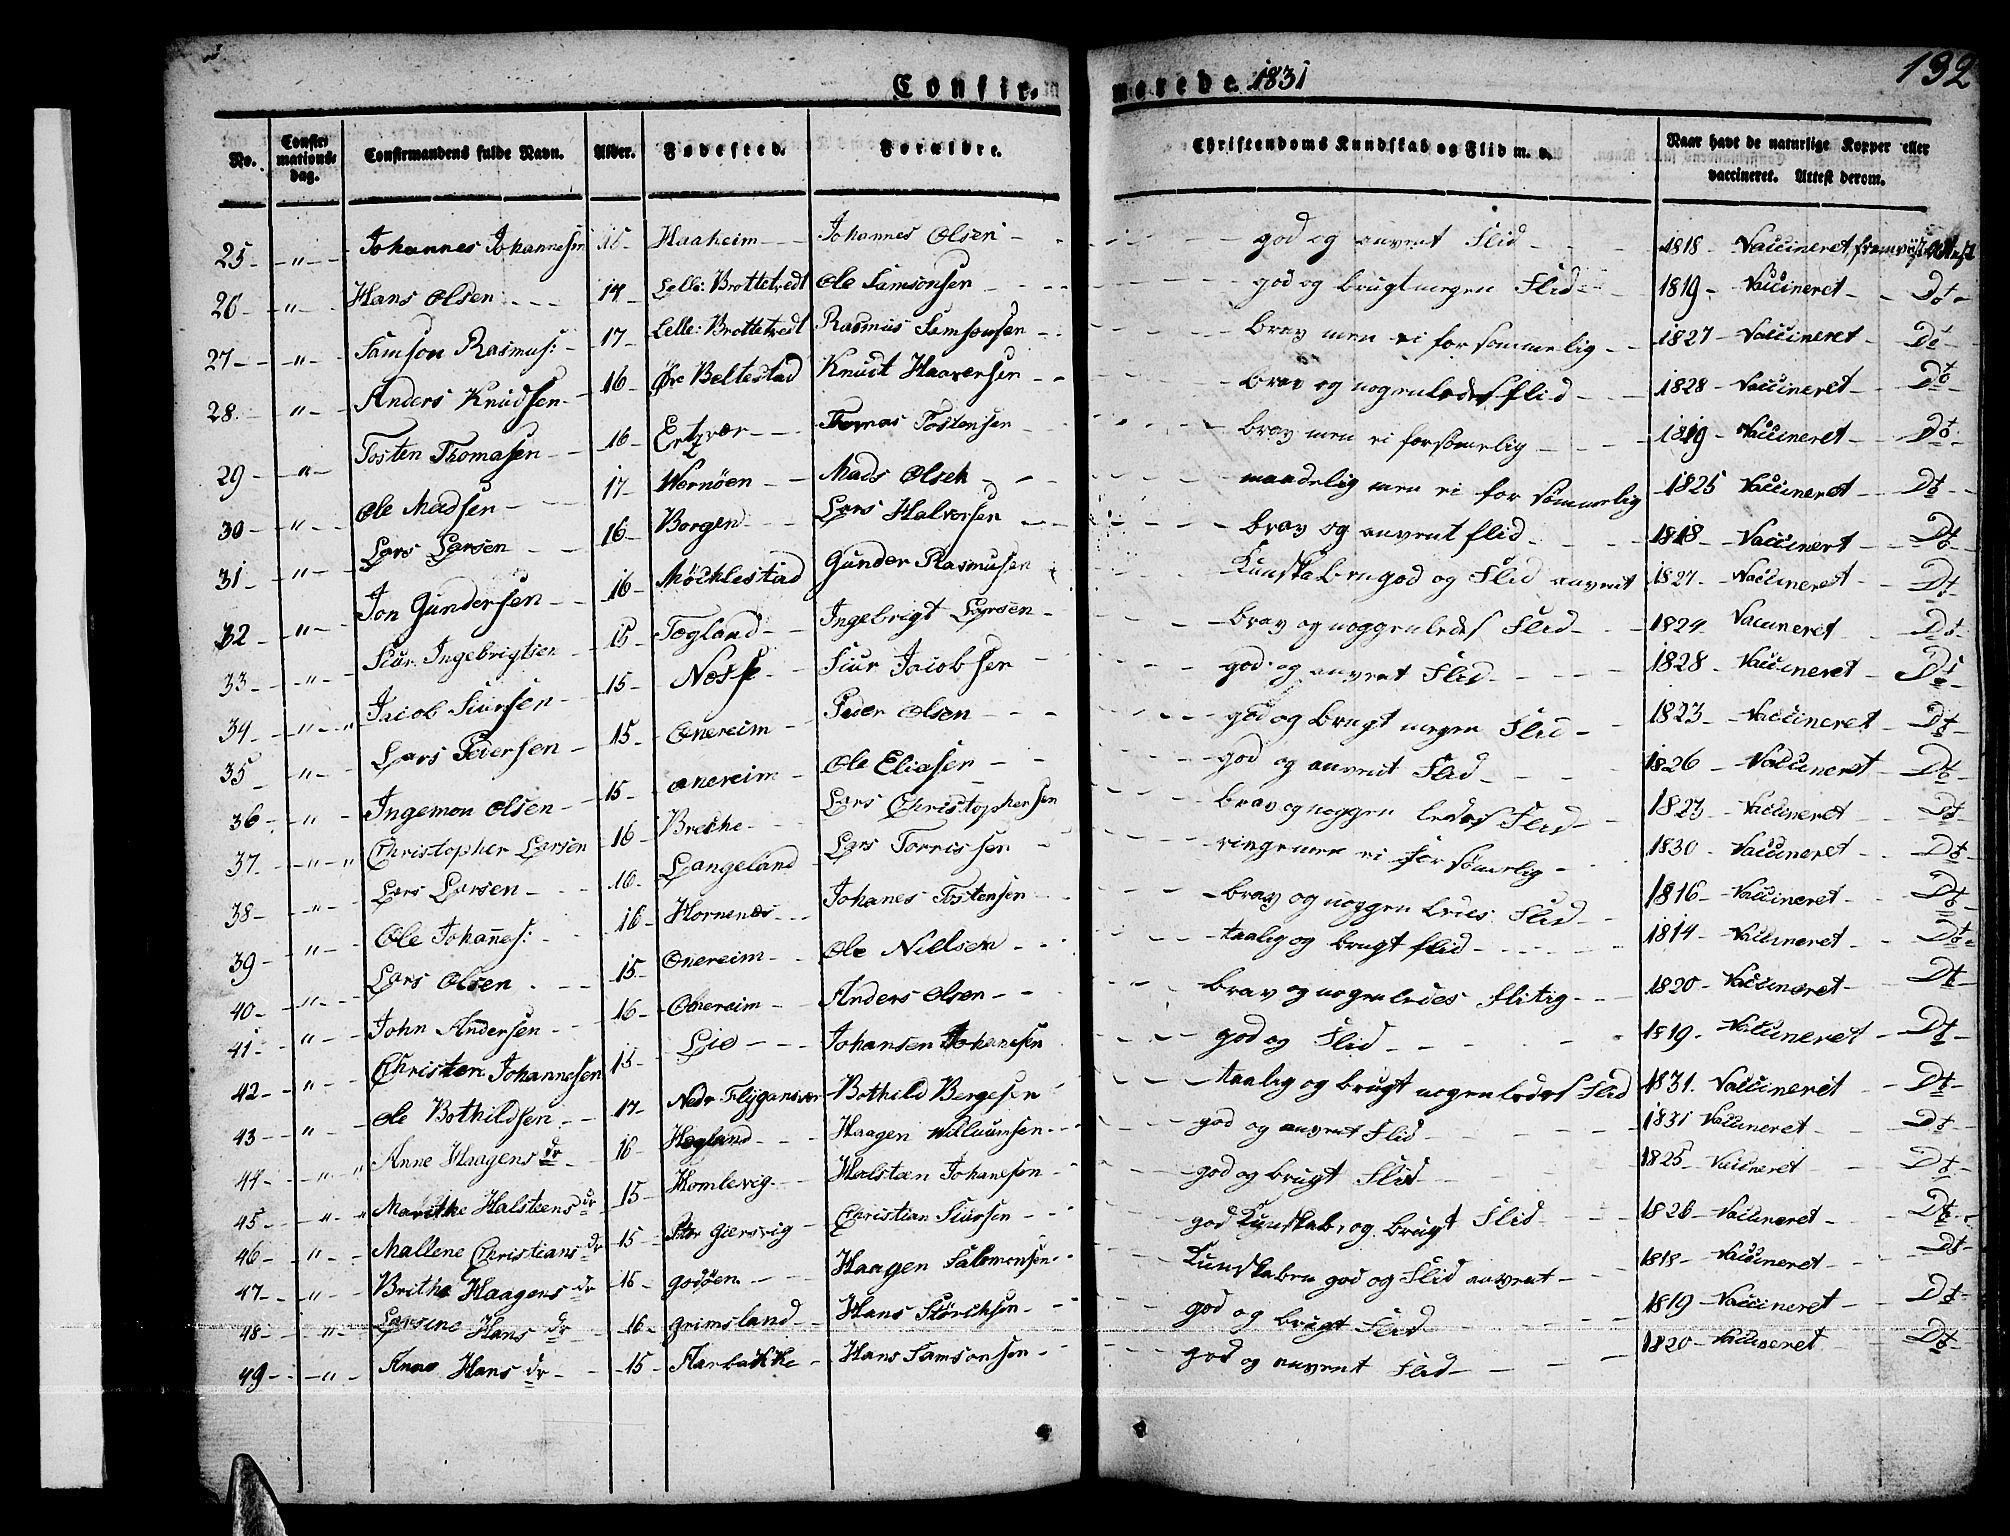 Confir- marede. 1831 192
No. Confirmations-dag. Confirmandens fulde Navn. Alder. Fødested. Forældre. Christendoms Kundskab og Flid m. v. Naar havt de naturlige Kopper eller vaccineret. Attest derom.
25 - " - Johannes Johannesen 15 - Haaheim - Johannes Olsen - god og anvent Flid - 1818 - Vaccineret fremviist Attest
26 - " - Hans Olsen - 17 - Lille: Brottetvedt Ole Samsonsen - god og brugt nogen Flid - 1819 - Vaccineret - Do -
27 - " - Samson Rasmus: - 17 - Lille: Brottetvedt Rasmus Samsonsen - brav men ei forsommelig - 1827 - Vaccineret - Do -
28 - " - Anders Knudsen - 16 - Øvr Beltestad Knudt Haaversen - brav og nogenledes flid - 1828 - Vaccineret - Do
29 - " - Tosten Thomasen - 16 - Ertzvær - Thomas Tostensen - brav men ei forsømelig - 1819 - Vaccineret - Do -
30 - " - Ole Madsen - 17 - Wornöen - Mads Olsen - maadelig men ei forsømmelig - 1825 Vaccineret - Do -
31 - " - Lars Larsen - 16 - Borgen - Lars Halversen - brav og anvent flid - 1818 - Vaccinert - Do -
32 - " - Jon Gundersen - 16 - Möcklestad Gunder Rasmusen - Kunskaben god og Flid anvent 1827 - Vaccineret - Do
33 - " - Siur Ingebrigtsen 15 - Togland - Ingebrigt Larsen - brav og noggenledes Flid - 1824 Vaccineret - Do -
34 - " - Jacob Siursen - 15 - Nesse - Siur Jacobsen - god og anvent Flid - 1828 - Vaccineret - Do -
35 - " - Lars Pedersen - 15 - Onereim - Peder Olsen - god og brugt nogen Flid - 1823 - Vaccineret - Do -
36 - " - Ingemon Olsen - 15 - Onereim - Ole Eliasen - god og anvent Flid - 1826 - Vaccineret - Do
37 - " - Christopher Larsen 16 - Breckhe - Lars Christophersen brav og noggen ledes Flid - 1823 - Vaccineret - Do
38 - " - Lars Larsen - 16 - Langeland Lars Torrissen - ringe men ei forsømelig - 1830 - Vaccineret - Do -
39 - " - Ole Johanes: - 16 - Hornenæs - Johanes Tostensen - brav og noggen ledes Flid - 1816 - Vaccineret - Do -
40 - " - Lars Olsen - 15 - Onereim - Ole Nillsen - taalig og brugt flid - 1814 - Vaccineret - Do -
41 - " - John Andersen - 16 - Onereim - Anders Olsen - brav og nogenledes flitig - 1820 - Vaccineret - Do -
42 - " - Christen Johannesen 15 - Lie - Johansen Johanesen god og Flid - 1819 - Vaccineret - Do -
43 - " - Ole Bothildsen - 17 - Nedr Flygansvær Bothild Bergesen taalig og brugt nogenledes Flid 1831 - Vaccineret - Do -
44 - " - Anne Haagens dr - 16 - Hogland - Haagen Willumsen - god og anvent Flid - 1831 Vaccineret - Do -
45 - " - Marithe Halsteens dr 15 - Komlevig - Halsteen Johanesen god og brugt Flid - 1825 - Vaccineret - Do -
46 - " - Mallene Christians dr 15 - Stor Giersvig - Christian Siursen - god Kunskab, og brugt Flid - 1826 - Vaccineret - Do -
47 - " - Brithe Haagens dr - 15 - Godöen - Haagen Salomonsen - Kunskaben god og Flid anvent - 1818 - Vaccineret - Do -
48 - " - Larsine Hans dr - 16 - Grimsland - Hans Störchsen - god og brugt Flid - 1819 - Vaccineret - Do -
49 - " - Anne Hans dr - 15 - Aarbakke - Hans Samsonsen - god og anvent Flid - 1820 - Vaccineret - Do -